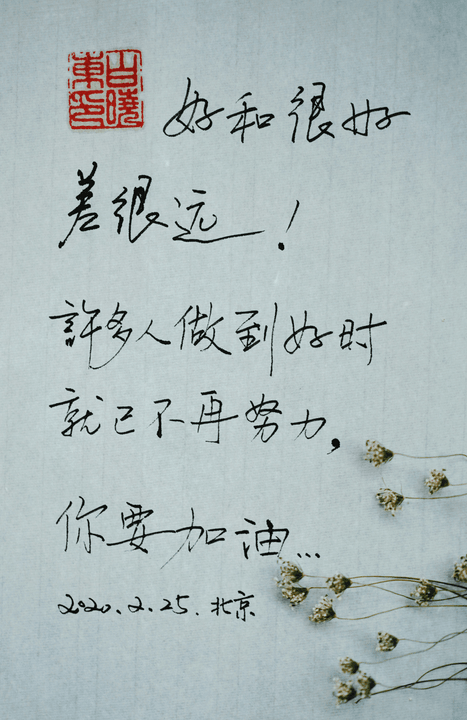 白曉東印
好和很好
差很远！
許多人做到好时
就已不再努力，
你要加油...
2020.2.25.北京